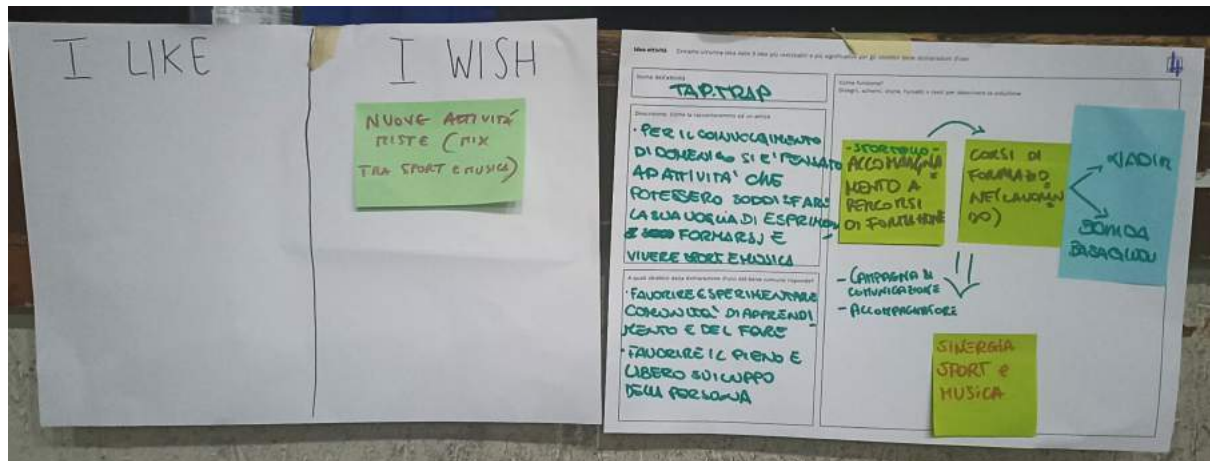 I LIKE
I WISH
NUOVE ATTIVITÁ
MISTE (MIX
TRA SPORT E MUSICA)
4
Idea attività
Nome dell'attività
TAP.TRAP
Descrizione. Come la racconteremmo ad un amico
• PER IL COINVOLGIMENTO
DI DOMENICO SI E' PENSATO
AD ATTIVITA' CHE
POTESSERO SODDISFARE
LA SUA VOGLIA DI ESPRIMERSI
FORMARSI E
VIVERE SPORT E MUSICA
A quali obiettivi della dichiarazione d'uso del bene comune risponde?
• FAVORIRE E SPERIMENTARE
COMUNITA' DI APPRENDI
MENTO E DEL FARE
• FAVORIRE IL PIENO E
LIBERO SVILUPPO
DELLA PERSONA
Come funziona?
Disegni, schemi, storie, fumetti o testi per descrivere la soluzione
- SPORTELLO -
ACCOMPAGNA
MENTO A
PERCORSI
DI FORMAZIONE
CORSI DI
FORMAZIO
NE (LAVORAN
DO)
- CAMPAGNA DI
COMUNICAZIONE
- ACCOMPAGNATORE
SINERGIA
SPORT e
MUSICA